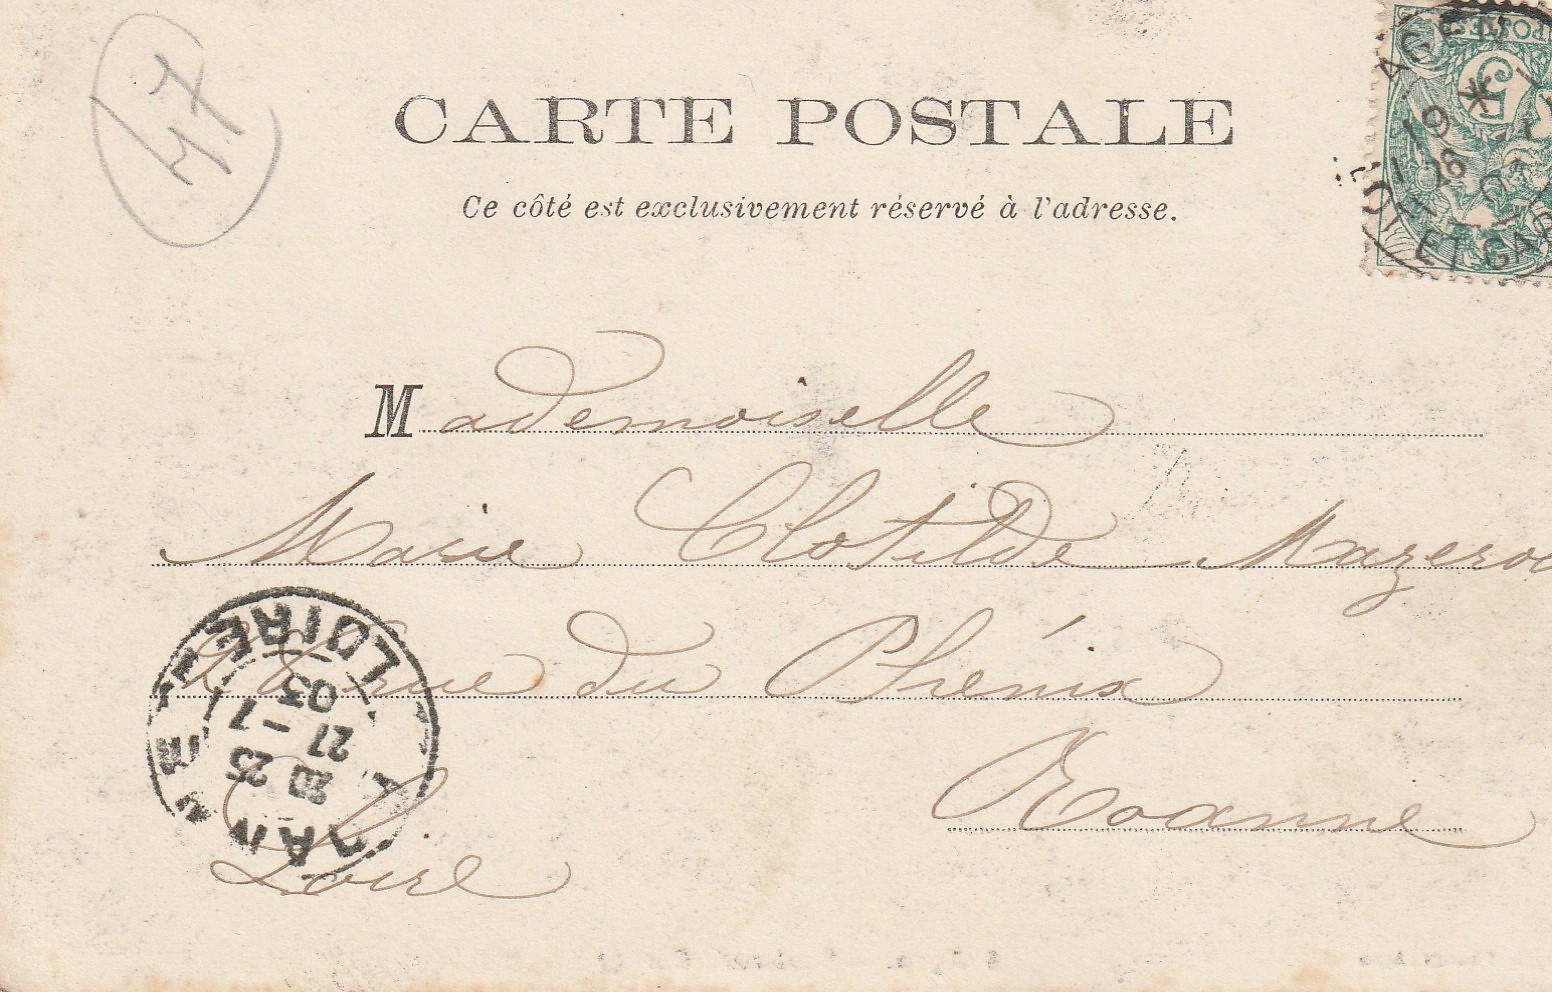 47
CARTE POSTALE
Ce côté est exclusivement réservé à l'adresse.
AGEN
19 *
26
LOT ET GAR
5
POSTES
Mademoiselle
Marie Clotilde Mazero
rue du Phénix
Roanne
Loire
ROANNE
LOIRE
20 25
27 -7
03